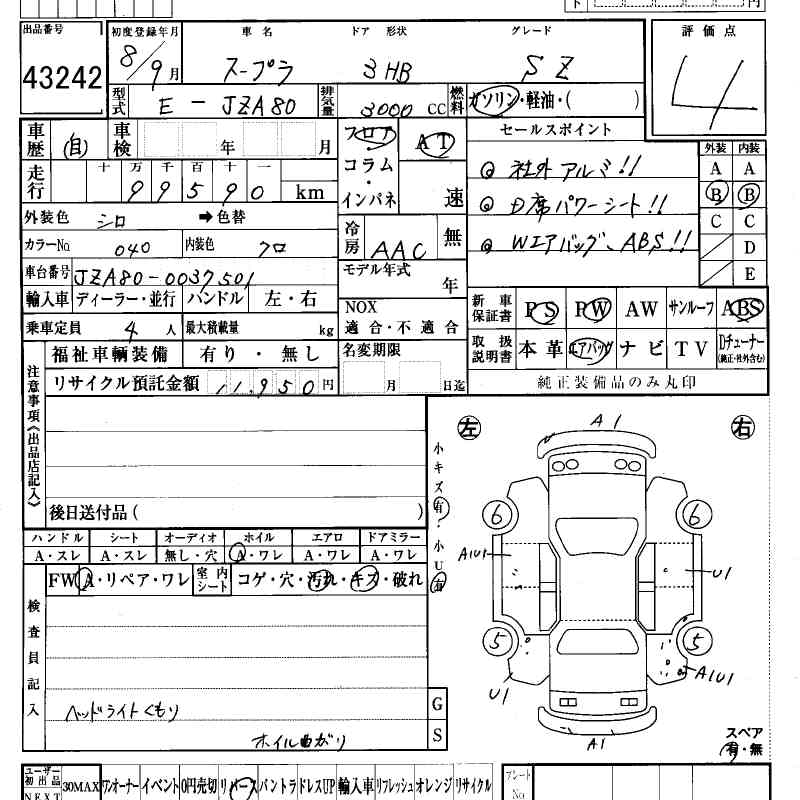 円
出品番号 初度登録年月 車名 ドア 形状 グレード 評価点
43242 8/9月 スープラ 3HB SZ 4
型式 E-JZA80 排気量 3000 CC 燃料 ガソリン・軽油・( )
車歴 (自) 車検 年 月 フロア AT セールスポイント 外装 内装
走行 十万千百十一 99590 km コラム・インパネ 速 ◎ 社外アルミ!! A A
◎ D席パワーシート!! B B
外装色 シロ ➡色替 冷房 AAC 無 ◎ Wエアバッグ、ABS!! C C
カラーNo. 040 内装色 クロ D
車台番号 JZA80-0037501 モデル年式 年 E
輸入車 ディーラー・並行 ハンドル 左・右 NOX 適合・不適合 新車保証書 PS PW AW サンルーフ ABS
乗車定員 4人 最大積載量 kg
福祉車輌装備 有り・無し 名変期限 月 日迄 取扱説明書 本革 エアバッグ ナビ TV Dチューナー(純正・社外含む)
リサイクル預託金額 11,950円 純正装備品のみ丸印
注意事項《出品店記入》
後日送付品( )
小キズ有? 小U有
左 A1 右
6 6
A1U1 U1
5 5
U1 A1U1
A1
ハンドル シート オーディオ ホイル エアロ ドアミラー
A・スレ A・スレ 無し・穴 A・ワレ A・ワレ A・ワレ
FW A・リペア・ワレ 室内シート コゲ・穴・汚れ・キズ・破れ
検査員記入
ヘッドライトくもり
ホイル曲がり
G
S
スペア
有・無
ユーザー初出品 30MAX ワンオーナー イベント 0円売切 リバース パントラ ドレスUP 輸入車 リフレッシュ オレンジ リサイクル プレートNo
NEXT